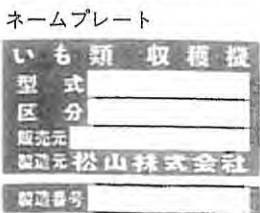 ネームプレート
いも類 収穫機
型式
区分
販売元
製造元 松山株式会社
製造番号